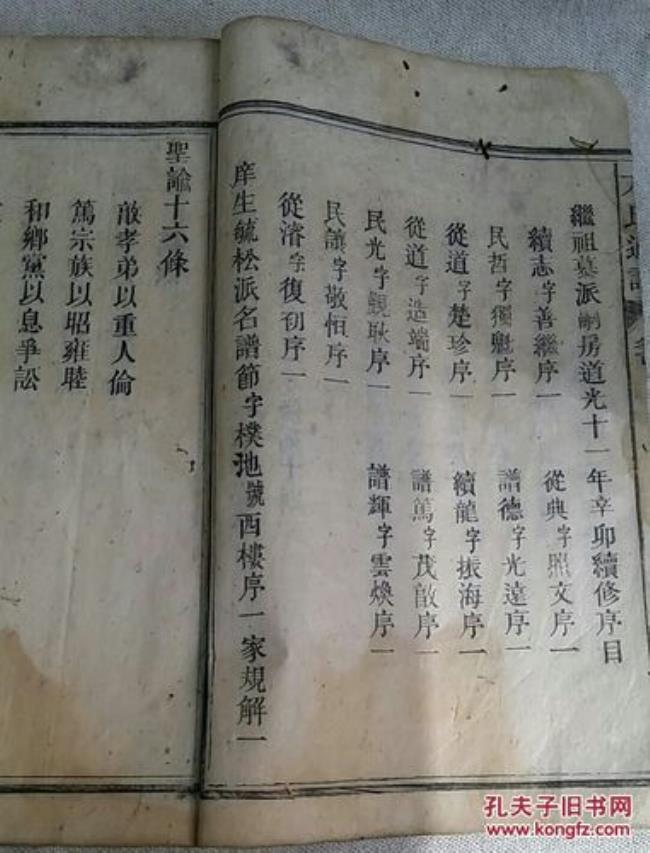 氏通譜
繼祖墓派嗣房道光十一年辛卯續修序目
續志字善繼序一 從典字照文序一
民哲字獨魁序一 譜德字光遠序一
從道字楚珍序一 續龍字振海序一
從道字造端序一 譜篤字茂啟序一
民光字覲耿序一 譜輝字雲煥序一
民讓字敬恒序一
從濬字復初序一
庠生毓松派名譜節字樸池號西樓序一家規解一
聖諭十六條
敵孝弟以重人倫
篤宗族以昭雍睦
和鄉黨以息爭訟
孔夫子旧书网
www.kongfz.com